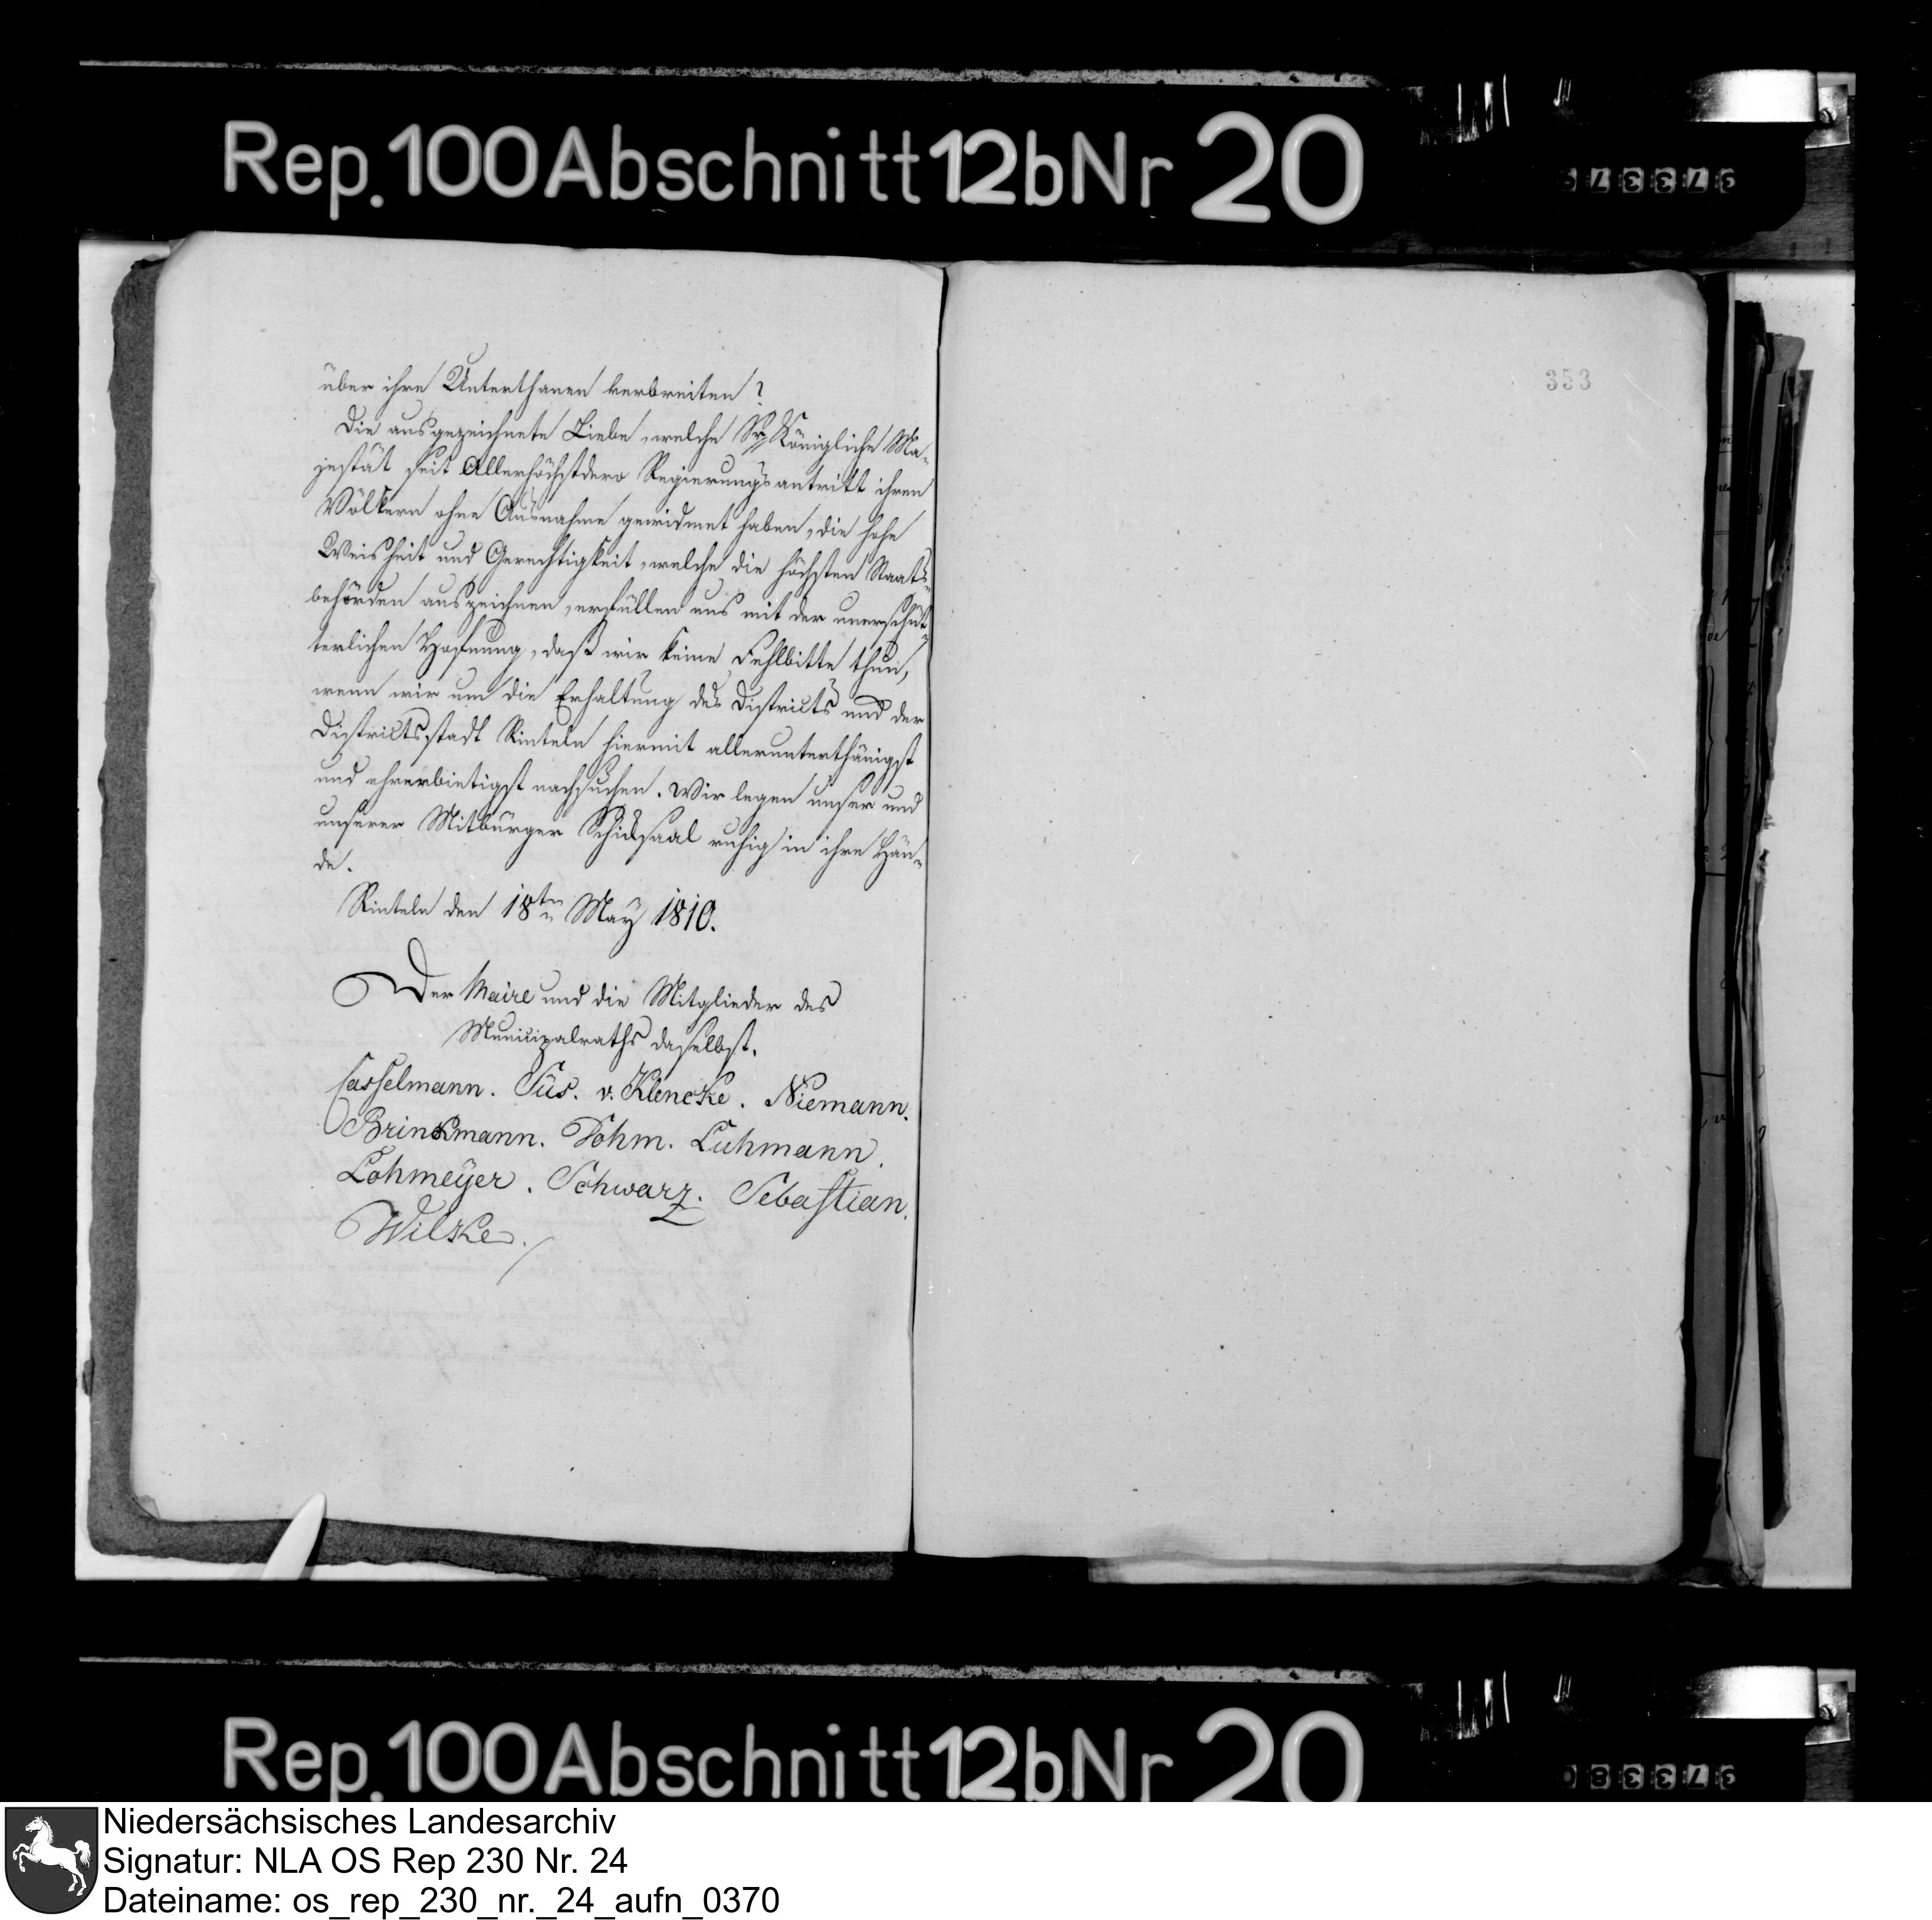 Rep. 100 Abschnitt 12b Nr 20
über ihre Unterthanen verbreiten?
Die ausgezeichnete Liebe, welche Se Königliche Ma-
jestät seit Allerhöchstdero Regierungsantritt ihren
Völkern ohne Ausnahme gewidmet haben, die hohe
Weisheit und Gerechtigkeit, welche die höchsten Staats-
behörden auszeichnen, erfüllen uns mit der unerschüt-
terlichen Hofnung, daß wir keine Fehlbitte thun,
wenn wir um die Erhaltung des Districts und der
Districtsstadt Rinteln hiermit allerunterthänigst
und ehrerbietigst nachsuchen. Wir legen unser und
unserer Mitbürger Schicksaal ruhig in ihre Hän-
de.
Rinteln den 18ten May 1810.
Der Maire und die Mitglieder des
Municipalraths daselbst.
Casselmann. Süs. v. Klencke. Niemann.
Brinckmann. Dohm. Luhmann.
Lohmeÿer. Schwarz. Sebastian.
Wilske.
353
Rep. 100 Abschnitt 12b Nr 20
Niedersächsisches Landesarchiv
Signatur: NLA OS Rep 230 Nr. 24
Dateiname: os_rep_230_nr._24_aufn_0370